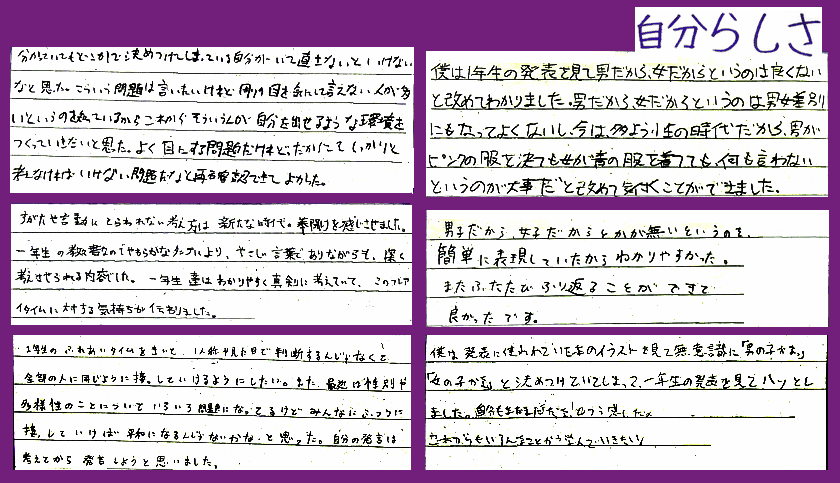 自分らしさ
分かっていてもどこかで決めつけてしまっている自分がいて直さないといけない
なと思った。こういう問題は言いたいけれど 目を気にして言えない人が多
いというのを知っているからこれからそういう人が自分を出せるような環境を
つくっていきたいと思った。よく目にする問題だけれど、だからこそしっかりと
考えなければいけない問題だなと再確認できてよかった。
すがたや言動にとらわれない考え方は新たな時代の幕開けを感じさせました。
一年生の やわらかな より、やさしい言葉でありながらも、深く
考えさせられる内容でした。一年生達はわかりやすく真剣に考えていて、このふれあ
イタイムに対する気持ちが伝わりました。
1年生のふれあいタイムをきいて、1人称や見た目で判断するんじゃなくて
全部の人に同じように接していけるようにしたい。また、最近は性別や
多様性のことについていろいろ問題になってるけどみんなにふつうに
接していけば平和になるんじゃないかな、と思った。自分の発言は
考えてから発言しようと思いました。
僕は1年生の発表を見て男だから、女だからというのは良くない
と改めてわかりました。男だから、女だからというのは男女差別
にもなってよくないし、今は、多様性の時代だから、男が
ピンクの服を 女が青の服を着てても、何も言わない
というのが大事だと改めて気付くことができました。
男子だから、女子だからとかが無いというのを、
簡単に表現していたからわかりやすかった。
またふたたびふり返ることができて
良かったです。
僕は、発表に使われていた のイラストを見て無意識に「男の子かな」
「女の子かな」と決めつけていてしまって、一年生の発表を見てハッとし
ました。
これからもいろんなことから学んでいきたい